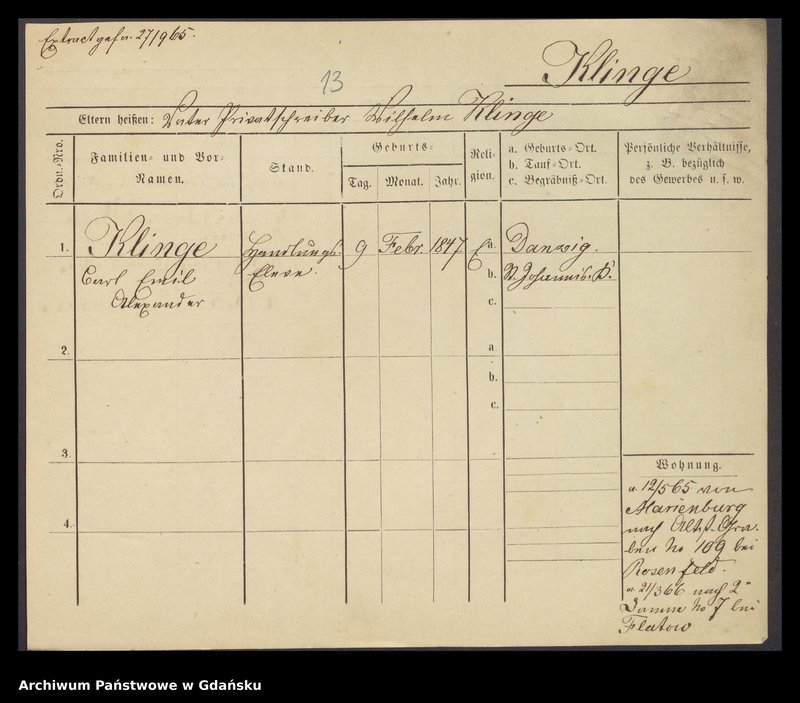 Extract gef. a. 27/9 65.
13
Klinge
Eltern heißen: Vater Privatschreiber Wilhelm Klinge
Ordn.-Nro.
Familien- und Vor-
Namen.
Stand.
Geburts-
Tag. Monat. Jahr.
Reli-
gion.
a. Geburts-Ort.
b. Tauf-Ort.
c. Begräbniß-Ort.
Persönliche Verhältnisse,
z. B. bezüglich
des Gewerbes u. s. w.
1. Klinge Handlungs- 9 Febr. 1847. E a. Danzig.
Carl Emil Eleve. b. St. Johannis. K.
Alexander c.
2. a.
b.
c.
3.
4.
Wohnung.
a. 12/5 65 von
Marienburg
nach Altst. Gra-
ben No 109 bei
Rosenfeld.
a. 21/3 66 nach 2
Damm No 7 bei
Flatow
Archiwum Państwowe w Gdańsku